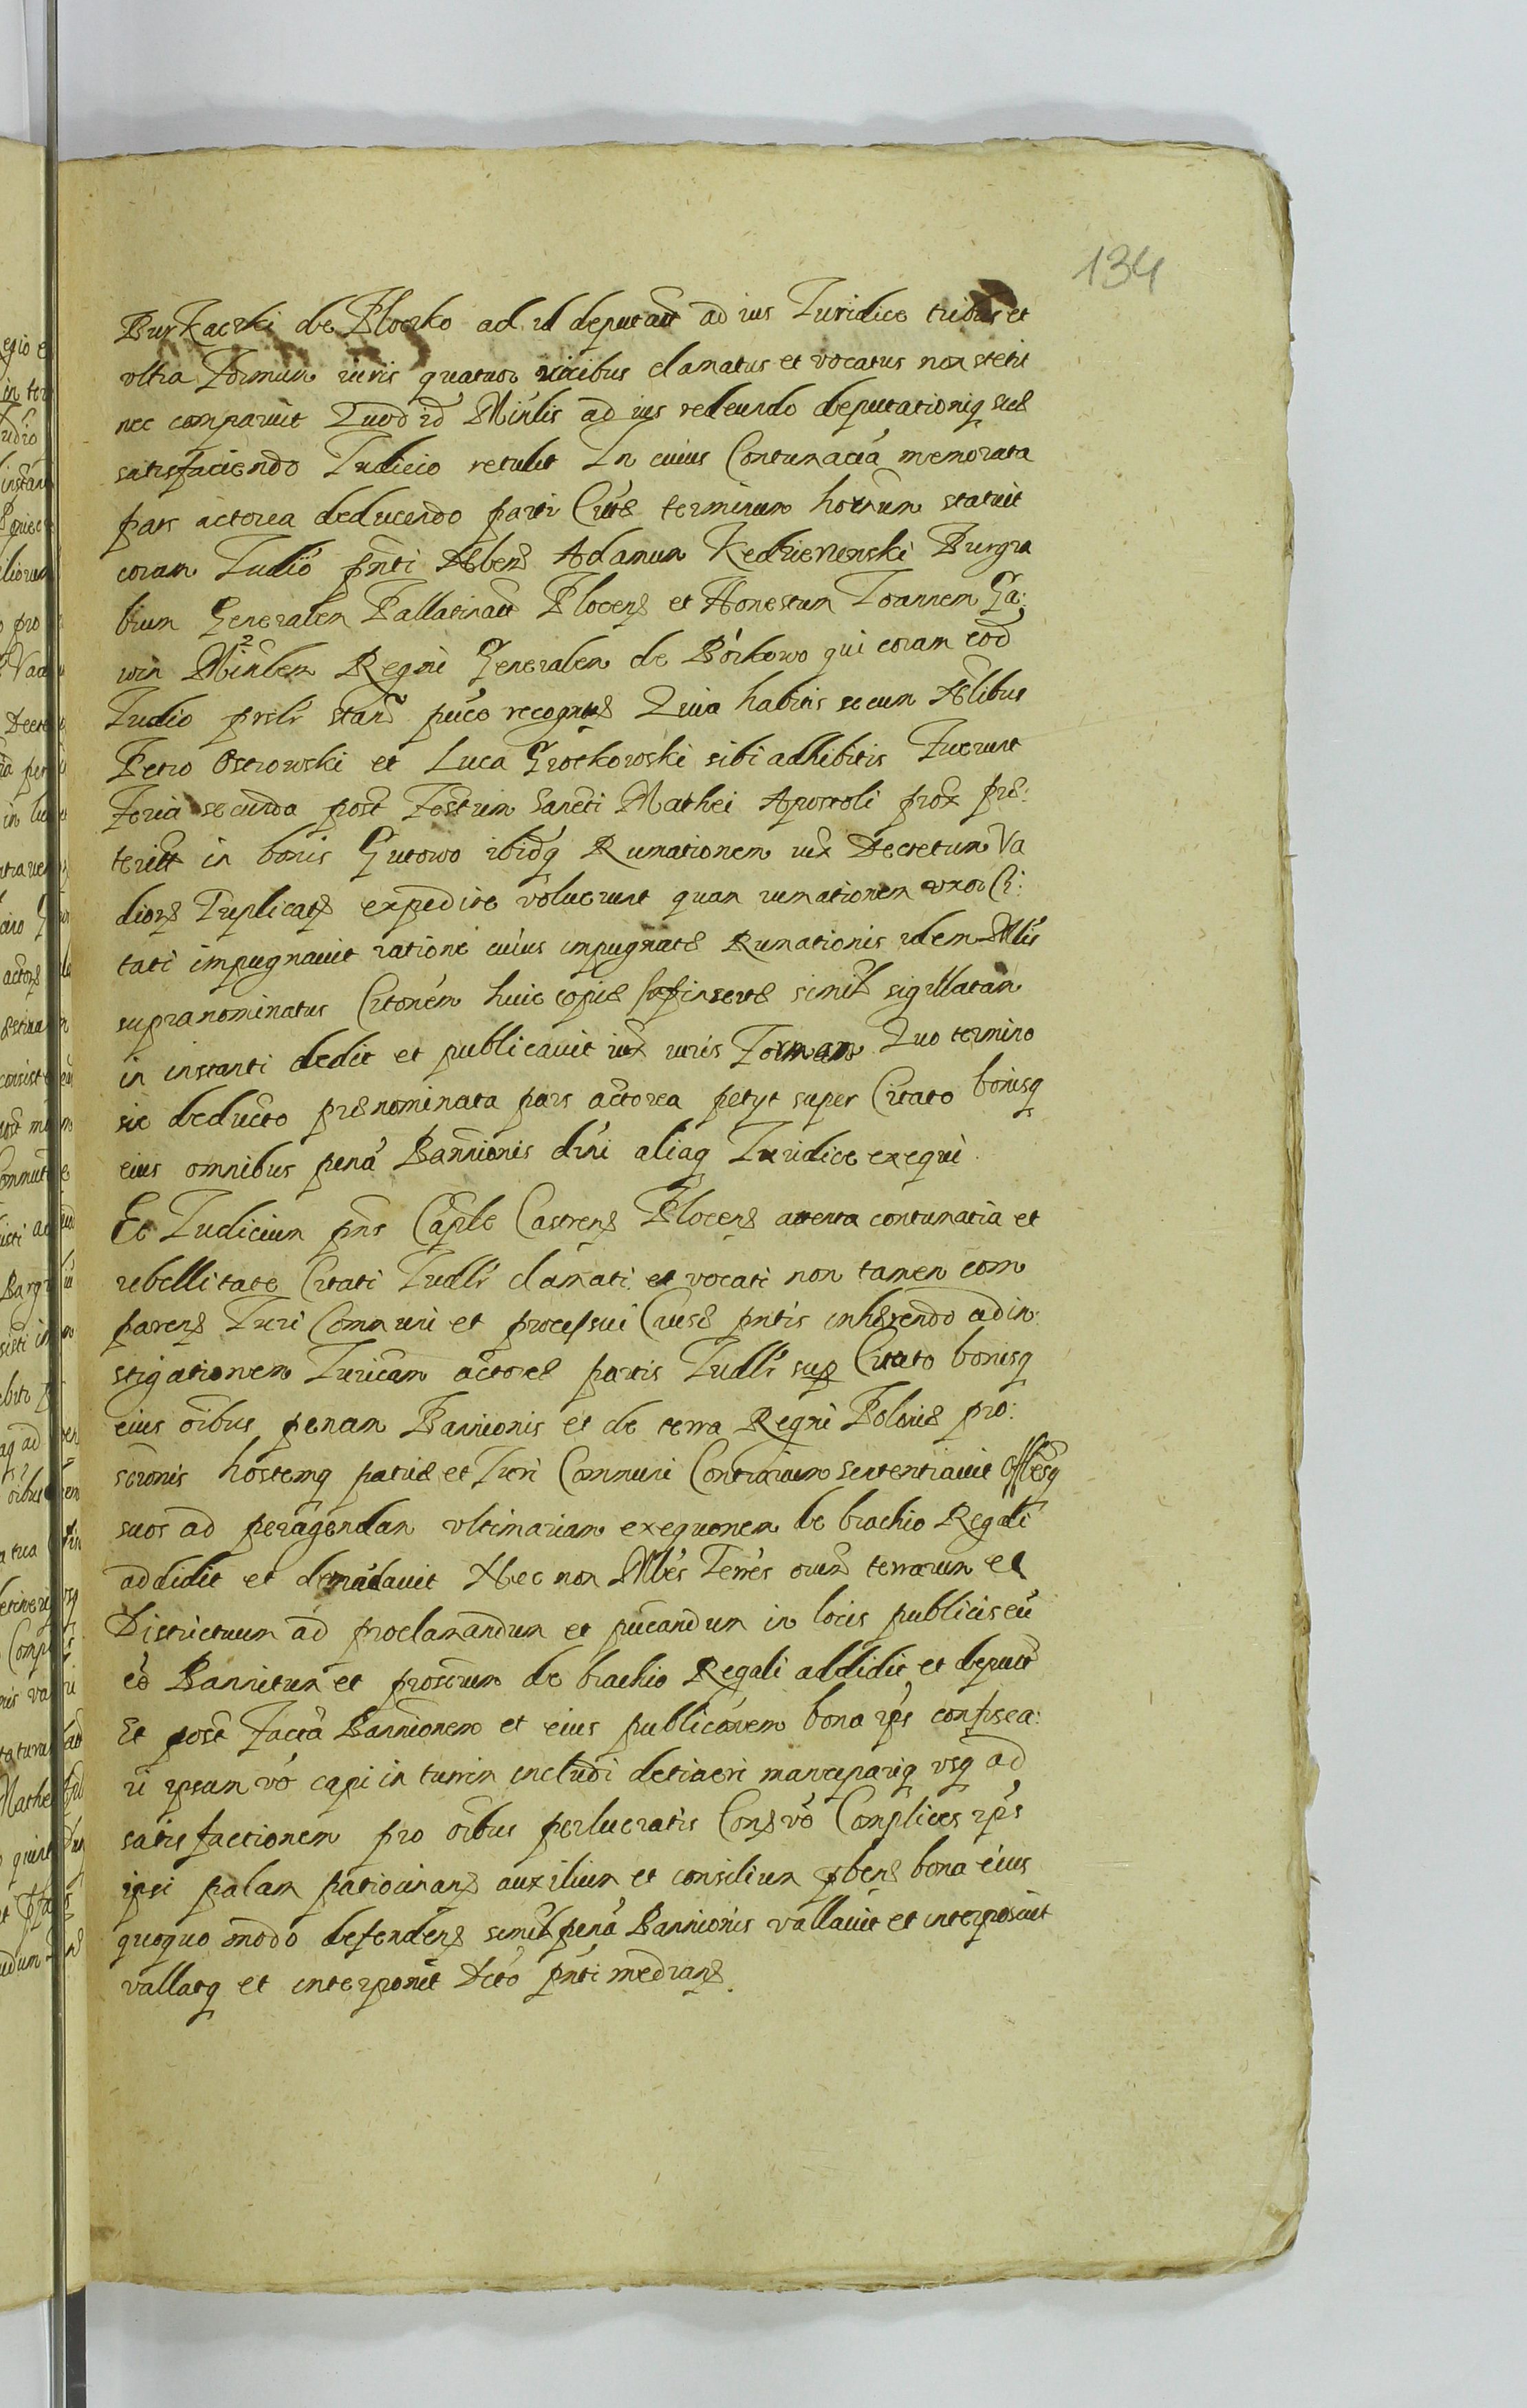 134
Burkacki de Plocko ad id deputatū ad ius Iuridice tribus et
ultra Formam iuris quatuor vicibus clamatus et vocatus non stetit
nec comparuit Quod id Minlis ad ius redeundo deputationiq suae
satisfaciendo Iudicio retulit In cuius Contumaciā memorata
pars actorea deducendo parti Citae terminum hornum statuit
coram Iudio pnti Nben Adamum Kedzierzenski Burgra
bium Generalem Pallatinatū Plocen et Honestum Ioannem Ga:
win Minlem Regni Generalem de Borkowo qui coram eod
Iudio prsłr stan puco recognt Quia habitis secum Nlibus
Petro Ostrowski et Luca Grockowski sibi adhibitis Fuerunt
Feria secunda post Festum Sancti Mathei Apostoli prox prae:
teritā in bonis Gutowo ibidq Rumationem iux Decretum Va
dior Triplicat expedire voluerunt quam rumationem uxor Ci:
tati impugnavit ratione cuius impugnatae Rumationis idem Mlis
supranominatus Citonem huic copiae insertae simil sigillatam
in instanti dedit et publicavit iux iuris Formam Quo termino
sic deducto praenominata pars actorea petyt super Citato bonisq
eius omnibus penā Bannionis dłni aliaq Iuridice exequi.
Et Iudicium pns Caple Castren Plocen attenta contumatia et
rebellitate Citati Iudlr clamati et vocati non tamen com
paren Iuri Communi et processui Causae pntis inhaerendo ad in:
stigationem Iuricam actoreae partis Iudlr sup Citato bonisq
eius oibus penam Bannionis et de terra Regni Poloniae pro:
scronis hostemq patriae et Iuri Communi Contrarium sententiavit Offlesq
suos ad peragendam ultimariam exequonem de brachio Regali
addidit et demādavit Nec non Mles Terrēs oium terrarum et
Districtuum ad proclamandum et pucandum in locis publicis eū
eo Bannitum et proscrum de brachio Regali addidit et deputt
Et post Factā Bannionem et eius publicōnem bona ips confisca:
ri ipsum vō capi in turrim includi detineri manciparig usq ad
satisfactionem pro oibus perlucratis Cons vō Complices ips
ipsi palam patrocinan auxilium et consilium pben bona eius
quoquo modo defenden simil penā Bannionis vallavit et interposuit
vallatq et interponit Dcto pnti median.